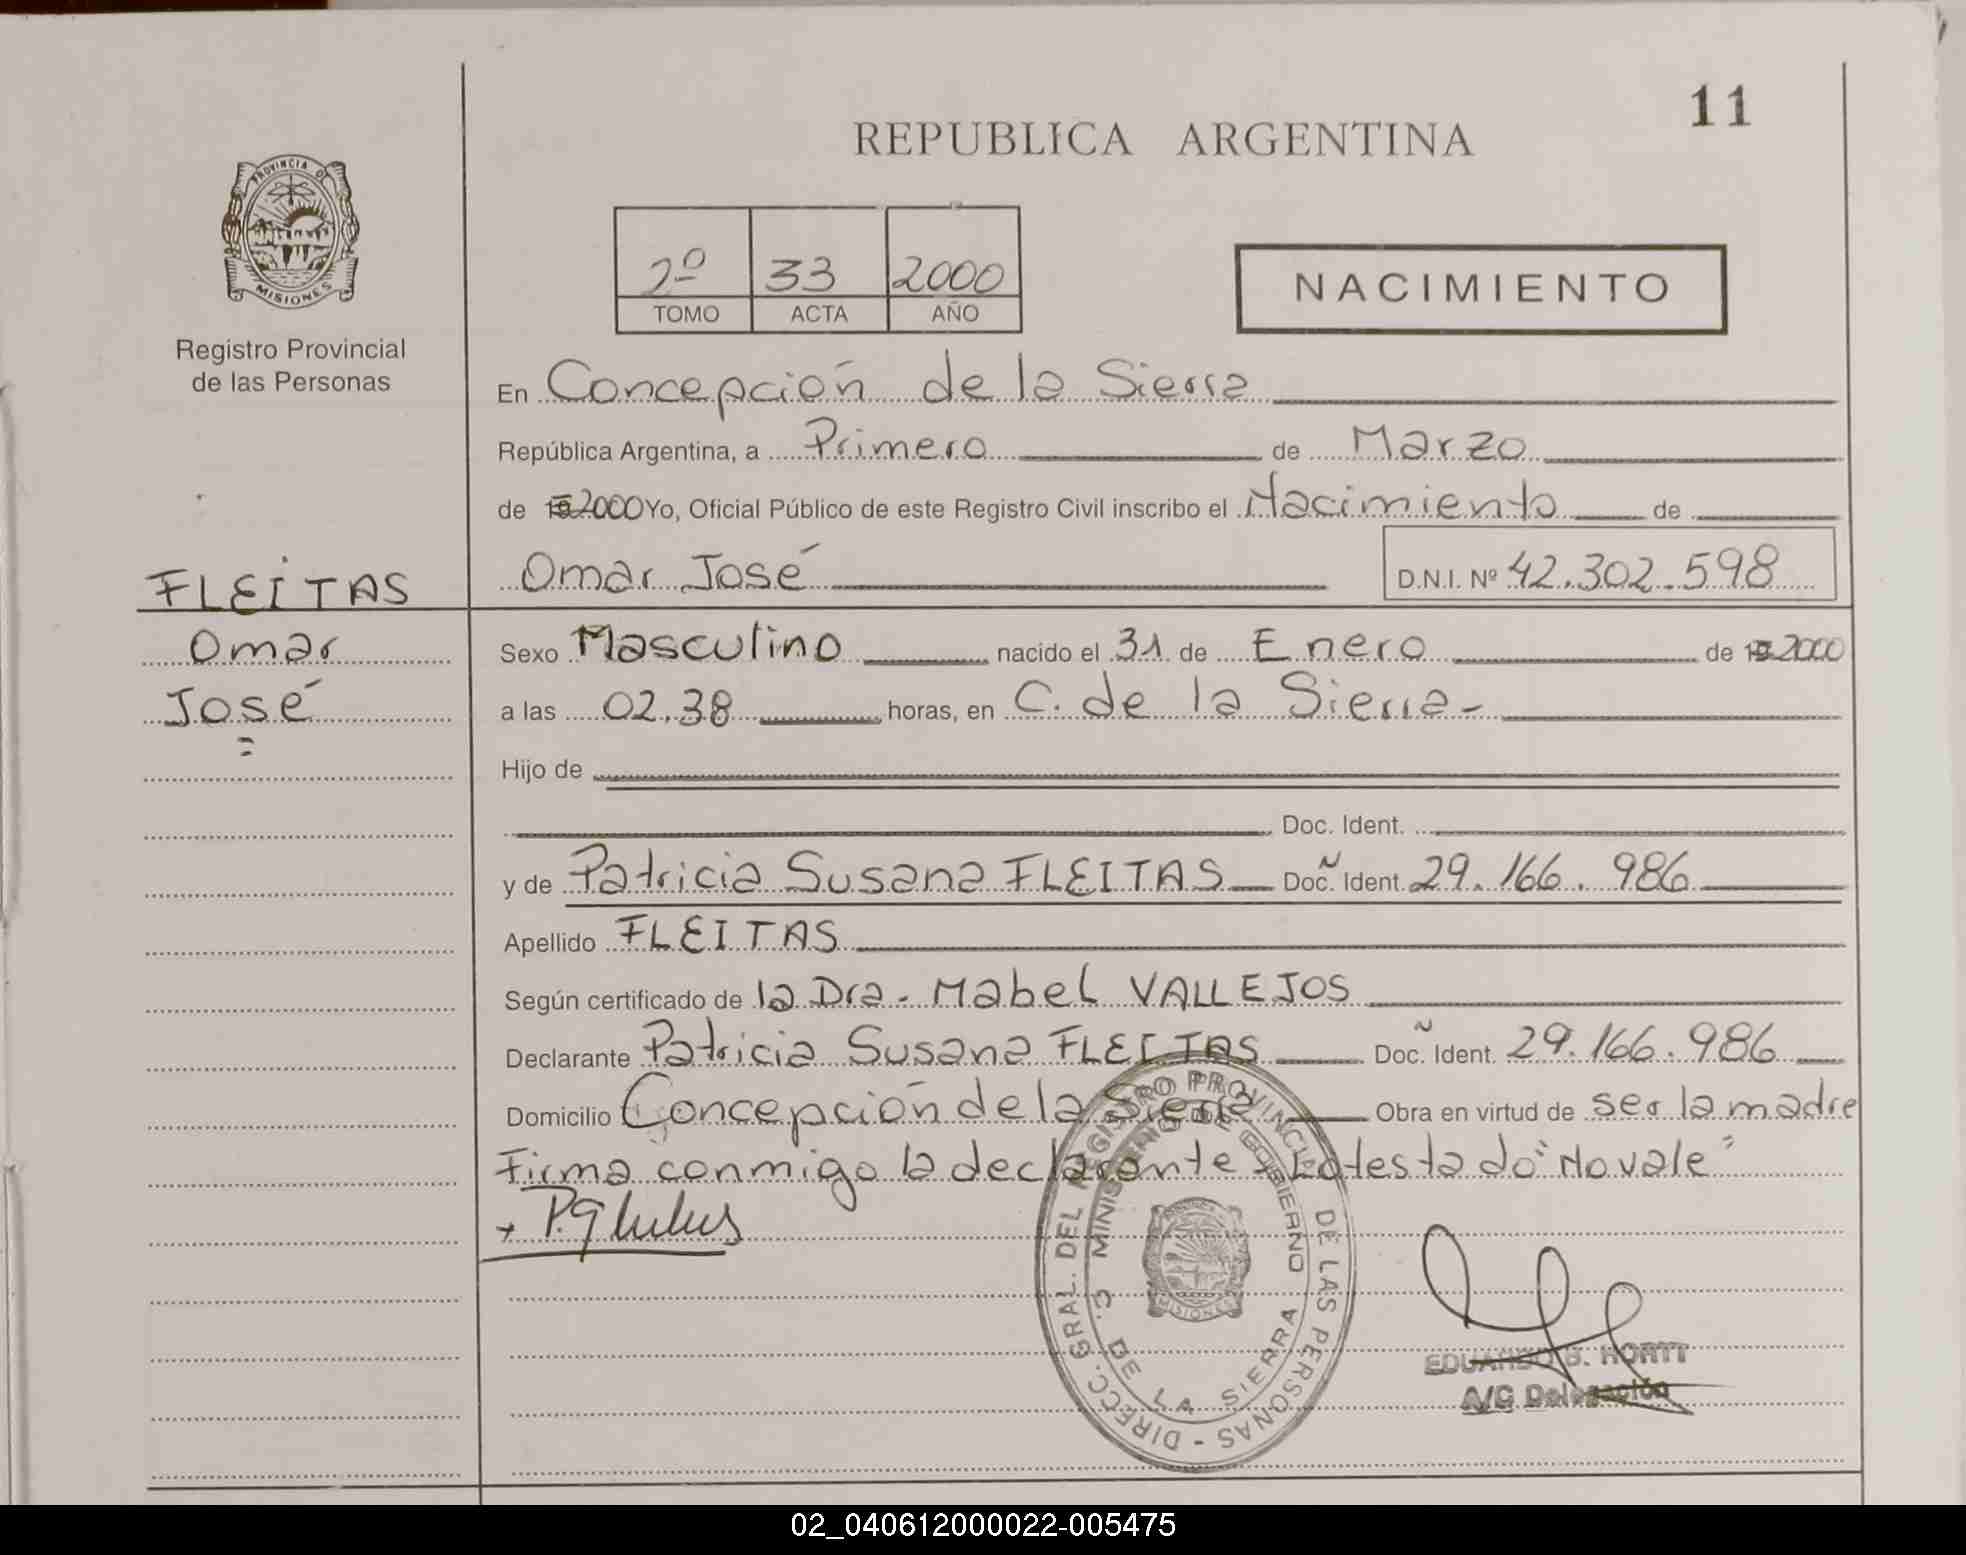 11
REPUBLICA ARGENTINA
PROVINCIA DE
MISIONES
Registro Provincial
de las Personas
2º 33 2000
TOMO ACTA AÑO
NACIMIENTO
En Concepción de la Sierra
República Argentina, a Primero de Marzo
de 19 2000 Yo, Oficial Público de este Registro Civil inscribo el Nacimiento de
Omar José D.N.I. Nº 42.302.598
FLEITAS
Omar
José
Sexo Masculino nacido el 31 de Enero de 19 2000
a las 02.38 horas, en C. de la Sierra-
Hijo de
Doc. Ident.
y de Patricia Susana FLEITAS Doc. Ident. 29.166.986
Apellido FLEITAS
Según certificado de la Dra. Mabel VALLEJOS
Declarante Patricia Susana FLEITAS Doc. Ident. 29.166.986
Domicilio Concepción de la Sierra Obra en virtud de ser la madre
Firma conmigo la declarante - Lo testado "No vale"
DIRECC. GRAL. DEL REGISTRO PROVINCIAL DE LAS PERSONAS -
MINISTERIO DE GOBIERNO
C. DE LA SIERRA
MISIONES
EDUARDO B. HORTT
A/C Delegación
02_040612000022-005475